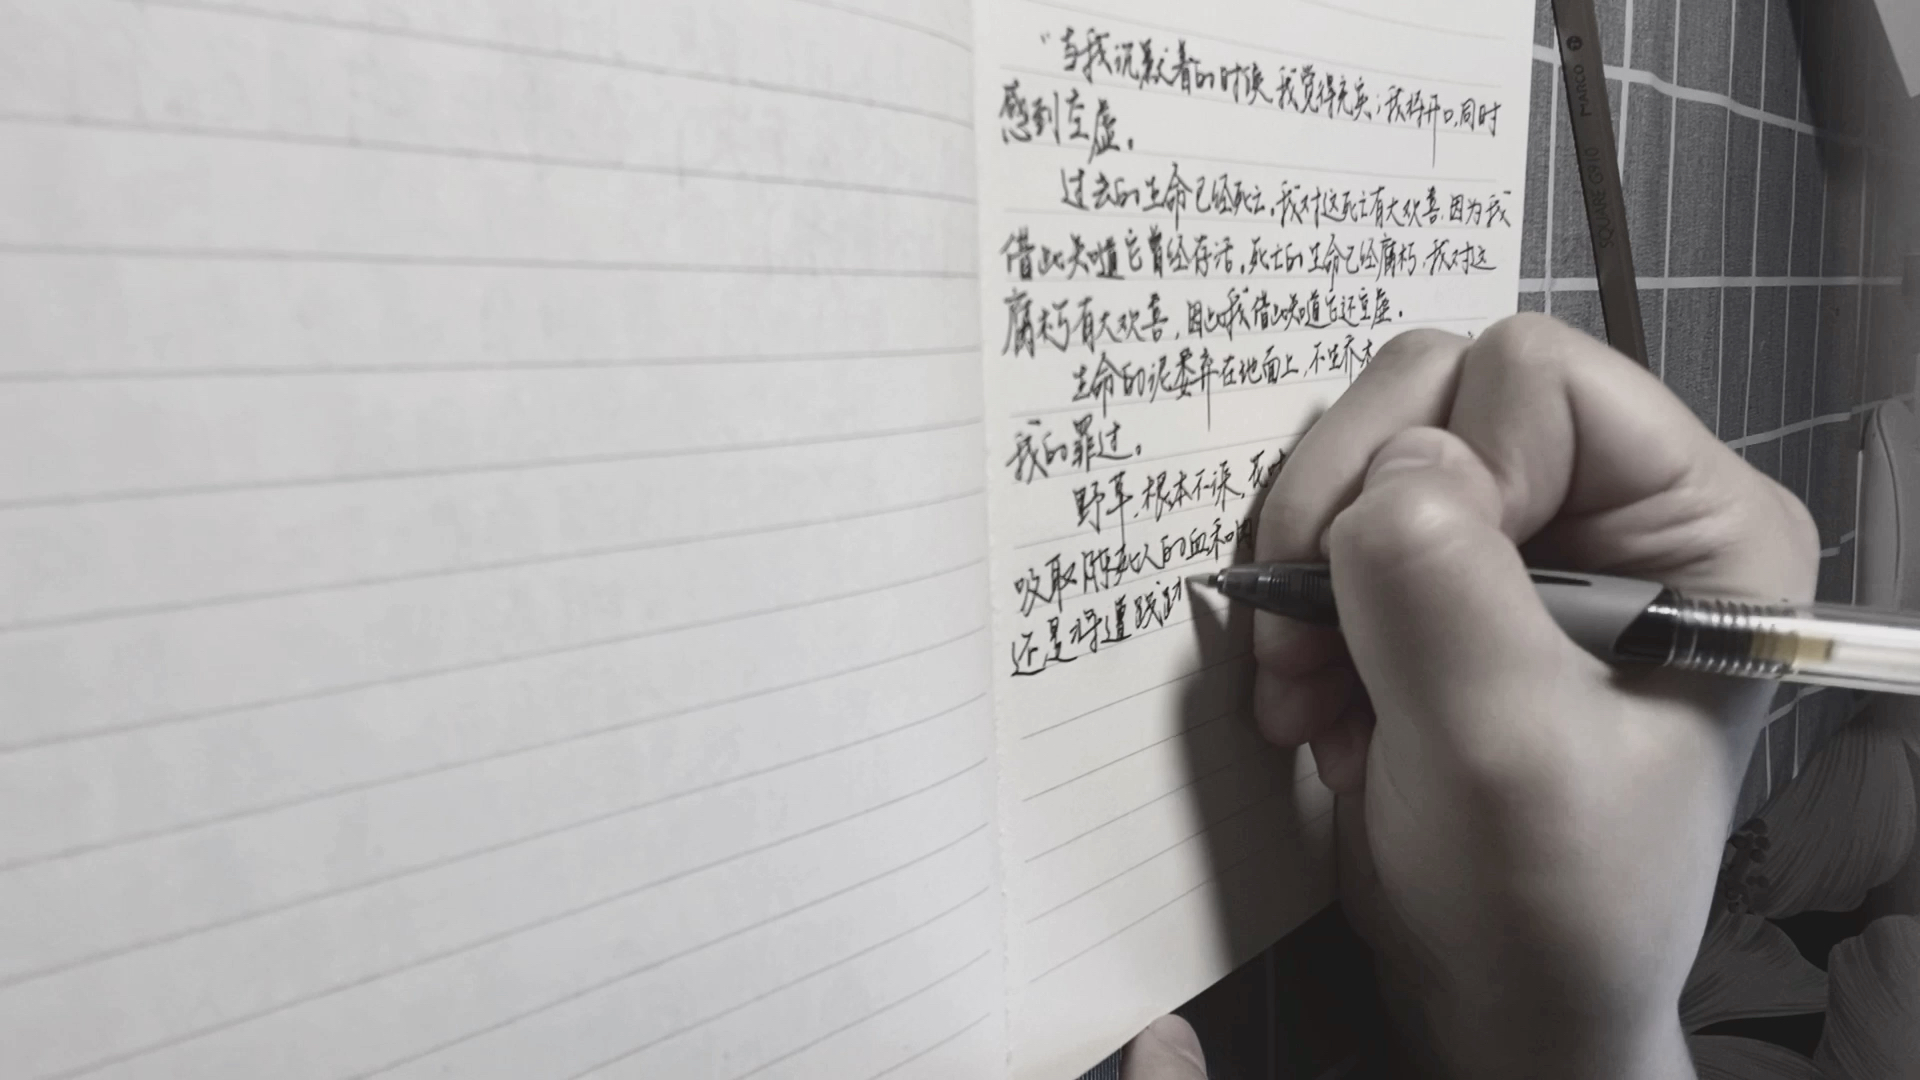 “当我沉默着的时候,我觉得充实;我将开口,同时
感到空虚。
过去的生命已经死亡,我对这死亡有大欢喜,因为我
借此知道它曾经存活。死亡的生命已经腐朽,我对这
腐朽有大欢喜,因此我借此知道它还空虚。
生命的泥委弃在地面上,不生乔木
我的罪过。
野草,根本不深,花
吸取陈死人的血和肉
还是将遭践踏
MARCO
SQUARE G910